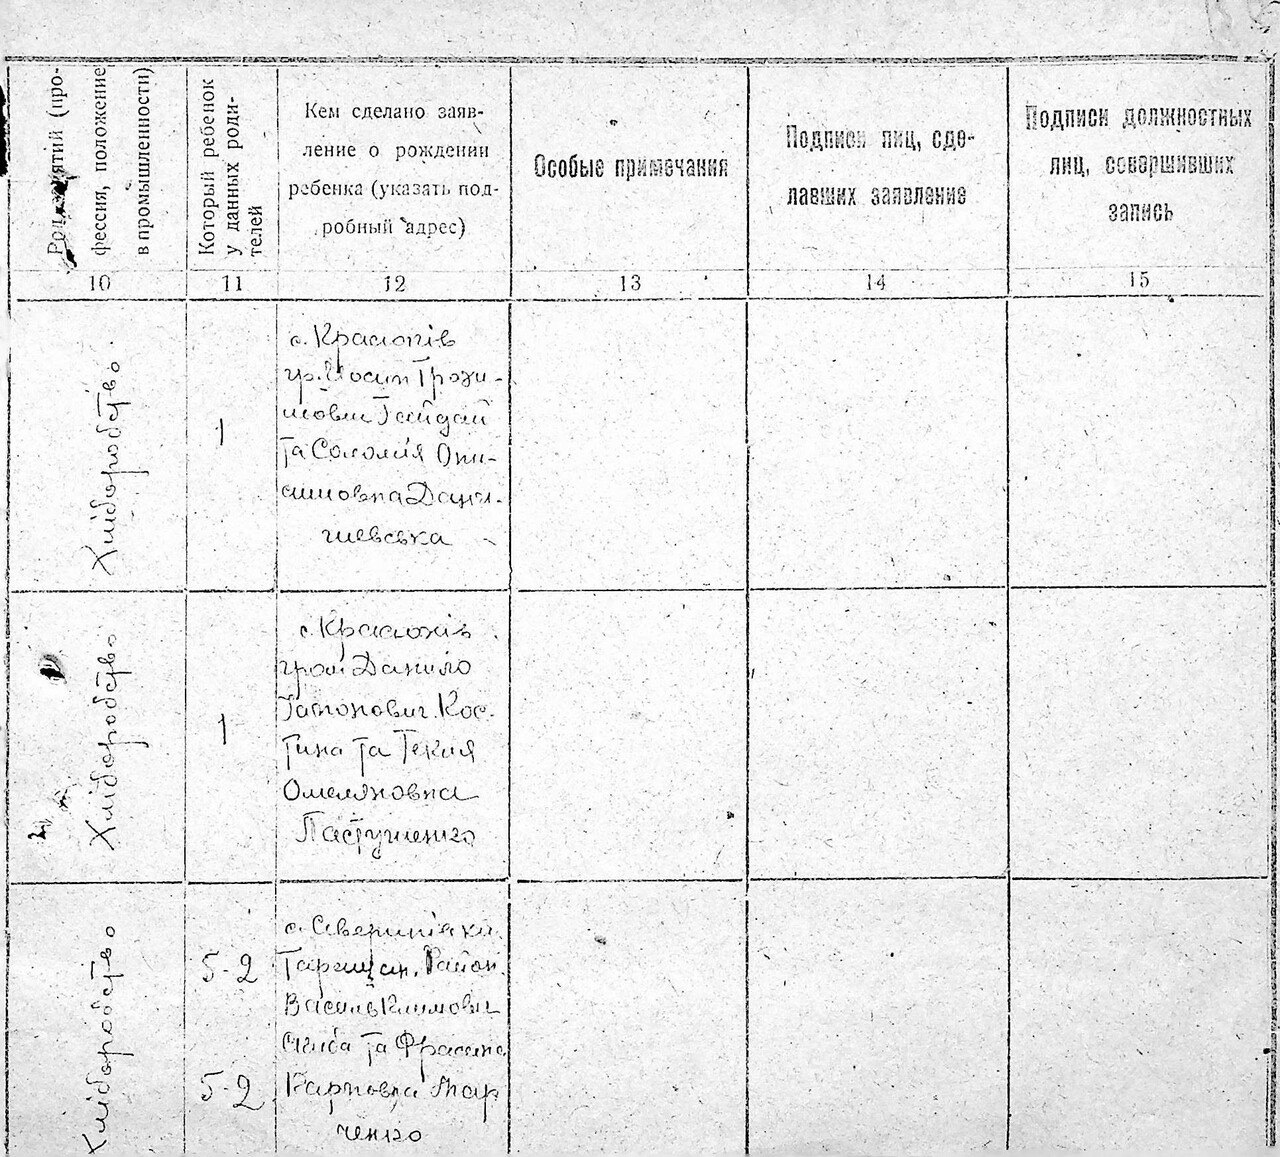 Род занятий (про-
фессия, положение
в промышленности)
Который ребенок
у данных роди-
телей
Кем сделано заяв-
ление о рождении
ребенка (указать под-
робный адрес)
Особые примечания
Подписи лиц, сде-
лавших заявление
Подписи должностных
лиц, совершивших
запись
10
11
12
13
14
15
Хліборобство
1
с. Красюків
гр. Йосип Трохи-
мович Гайдай
та Соломія Они-
симовна Дани-
левська
Хліборобство
1
с. Красюків
гром Данило
Кос-
тина та Текля
Омеляновна
Пастушенко
Хліборобство
5-2
5-2
с.
Таращан. Район
Василь Климович
та Фросина
Карповна Мар
ченко